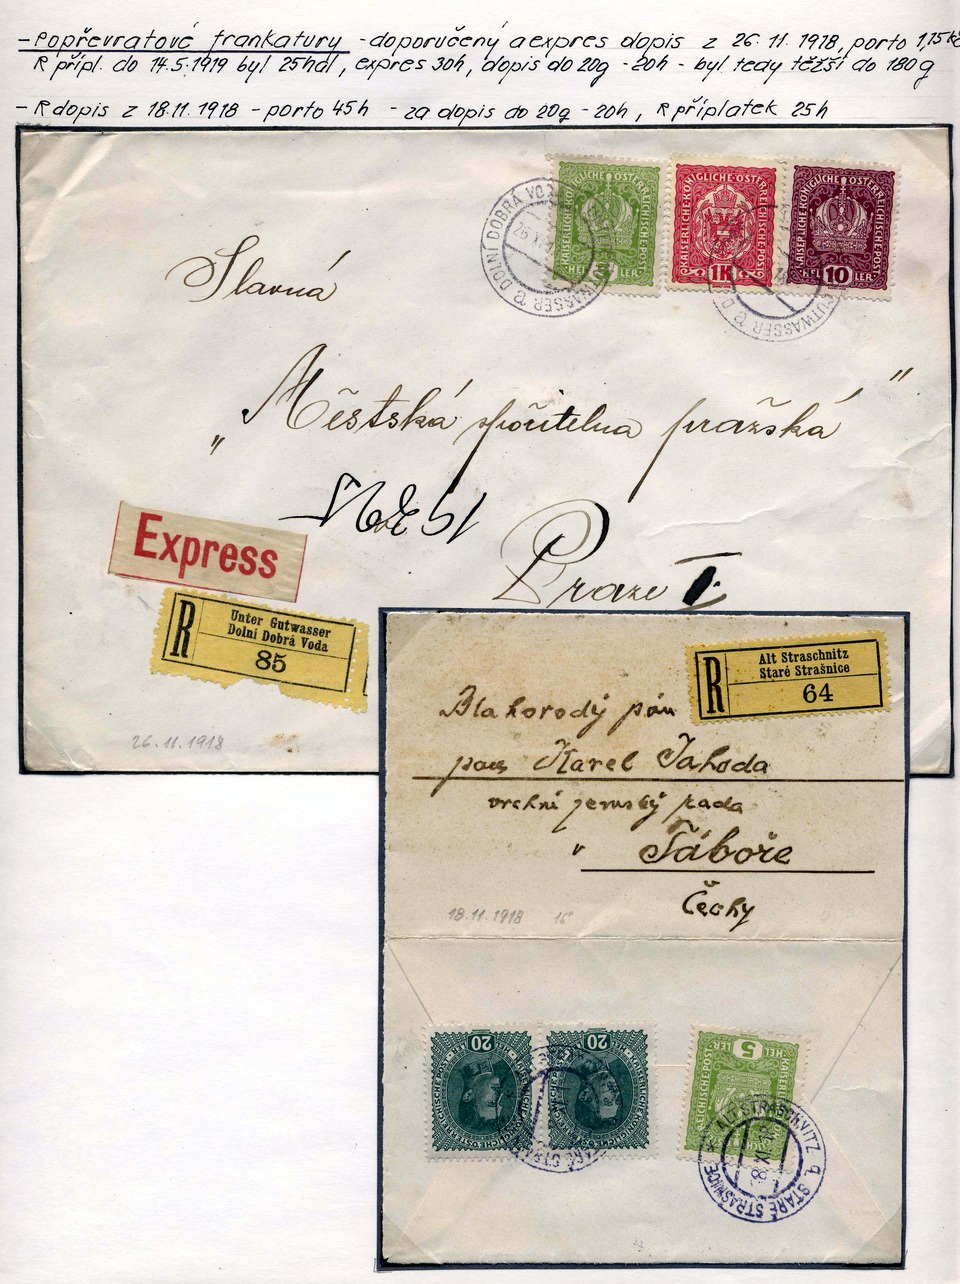 - Popřevratové frankatury - doporučený a expres dopis z 26.11.1918, porto 1,15Kč
R přípl. do 14.5.1919 byl 25hal, expres 30h, dopis do 20g - 20h - byl tedy těžší do 180g
- R dopis z 18.11.1918 - porto 45h - za dopis do 20g - 20h, R příplatek 25h
KAISERLICHE KÖNIGLICHE ÖSTERREICHISCHE POST
HEL LER
KAISERLICHE KÖNIGLICHE ÖSTERREICHISCHE POST
1K
KAISERLICHE KÖNIGLICHE ÖSTERREICHISCHE POST
HEL 10 LER
DOLNÍ DOBRÁ
GUTWASSER
Slavná
„Městská spořitelna pražská"
Praze I.
Express
R
Unter Gutwasser
Dolní Dobrá Voda
85
26.11.1918
R
Alt Straschnitz
Staré Strašnice
64
Blahorodý pán
pan Karel Jahoda
vrchní zemský rada
v Táboře
Čechy
18.11.1918 16°
20
20
5
HEL LER
ALT STRASCHNITZ
STARÉ STRAŠNICE